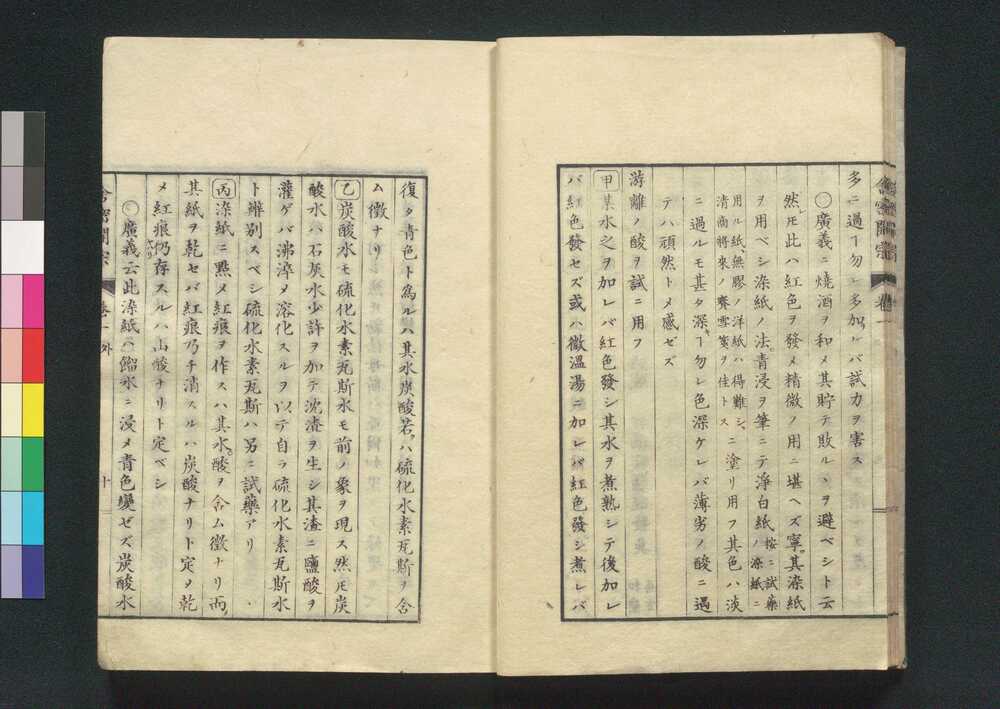 多ニ過ー勿レ多加レバ試力ヲ害ス
〇廣義ニ燒酒ヲ和メ其貯テ敗ルヽヲ避ベシト云
然ᅟ𪜈此ハ紅色ヲ發メ精微ノ用ニ堪ヘズ寧其染紙
ヲ用ベシ染紙ノ法青浸ヲ筆ニテ淨白紙按ニ試藥ノ染紙ニ
用ル紙無膠ノ洋紙ハ得難シ、清商將來ノ賽雪箋ヲ佳トスニ塗リ用フ其色ハ淡
ニ過ルモ甚タ深ー勿レ色深ケレバ薄劣ノ酸ニ遇
テハ頑然トメ感ゼズ
游離ノ酸ヲ試ニ用フ
甲某水之ヲ加レバ紅色發シ其水ヲ煮熟シテ後加レ
バ紅色發セズ或ハ微溫湯ニ加レバ紅色發シ煮レバ
舍密開宗 卷一
復タ青色ト為ルハ其水炭酸若ハ硫化水素瓦斯ヲ含
ム徴ナリ
乙炭酸水モ硫化水素瓦斯水モ前ノ象ヲ現ス然𪜈炭
酸水ハ石灰水少許ヲ加テ沈渣ヲ生シ其渣ニ鹽酸ヲ
灌ゲバ沸滓メ溶化スルヲ以テ自ラ硫化水素瓦斯水
ト辨別スベシ硫化水素瓦斯ハ另ニ試藥アリ
丙染紙ニ點メ紅痕ヲ作スハ其水酸ヲ含ム徴ナリ而
其紙ヲ乾セバ紅痕乃チ消スルハ炭酸ナリト定メ乾
メ紅痕仍存スルハ山酸ナリト定ベシ
〇廣義云此染紙ハ餾水ニ浸メ青色變ゼズ炭酸水
舍密開宗 卷一外 十